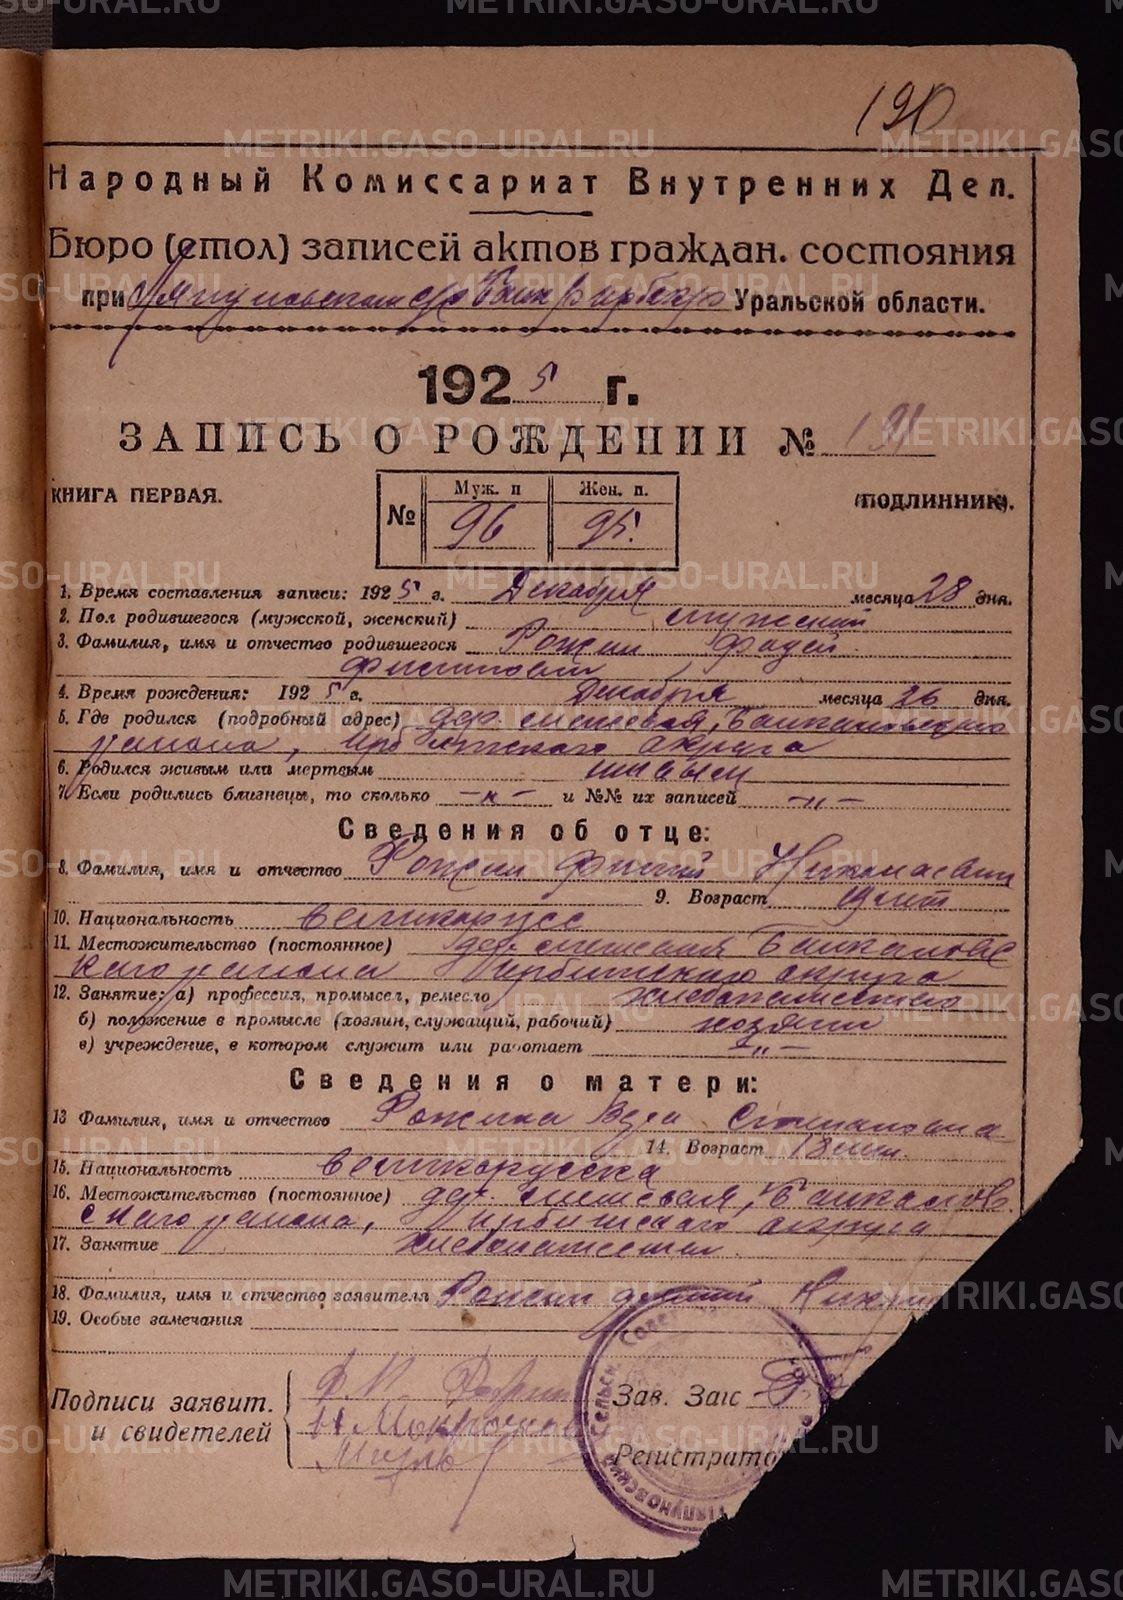 190
Народный Комиссариат Внутренних Дел.
Бюро (стол) записей актов граждан. состояния
при Уральской области.
1925 г.
ЗАПИСЬ О РОЖДЕНИИ № 191
КНИГА ПЕРВАЯ.
(ПОДЛИННИК).
№ Муж. п Жен. п.
96 95.
1. Время составления записи: 1925 г. Декабря месяца 28 дня.
2. Пол родившегося (мужской, женский) мужской
3. Фамилия, имя и отчество родившегося Рожин Фадей
4. Время рождения: 1925 г. Декабря месяца 26 дня.
5. Где родился (подробный адрес) дер. Байкаловского
района, Ирбитского округа
6. Родился живым или мертвым живым
7. Если родились близнецы, то сколько —„— и №№ их записей —„—
Сведения об отце:
8. Фамилия, имя и отчество Рожин
9. Возраст 19 лет
10. Национальность великорусс
11. Местожительство (постоянное) дер. Байкаловс
кого района Ирбитского округа
12. Занятие: а) профессия, промысел, ремесло хлебопашество
б) положение в промысле (хозяин, служащий, рабочий) хозяин
в) учреждение, в котором служит или работает —„—
Сведения о матери:
13 Фамилия, имя и отчество Рожина Вера Степановна
14. Возраст 18 лет.
15. Национальность великорусска
16. Местожительство (постоянное) дер. Байкалов
ского района, Ирбитского округа
17. Занятие хлебопашество.
18. Фамилия, имя и отчество заявителя Рожин
19. Особые замечания
Подписи заявит. и свидетелей
Ф.Н. Рожин
Зав. Загс
Регистрато